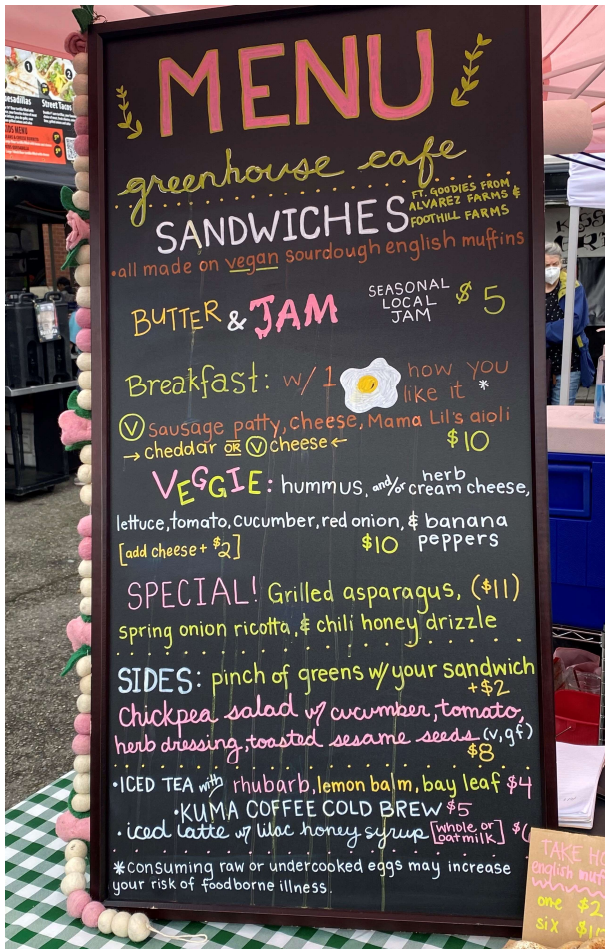 1
2
esadillas
Street Tacos
MENU
greenhouse cafe
FT. GOODIES FROM
ALVAREZ FARMS &
FOOTHILL FARMS
SANDWICHES
•all made on vegan sourdough english muffins
BUTTER & JAM
SEASONAL
LOCAL
JAM
$5
Breakfast: w/ 1 how you
like it *
Ⓥ sausage patty, cheese, Mama Lil's aioli
→ cheddar OR Ⓥ cheese ←
$10
VEGGIE: hummus, and/or herb
cream cheese,
lettuce, tomato, cucumber, red onion, & banana
peppers
[add cheese + $2]
$10
SPECIAL! Grilled asparagus, ($11)
spring onion ricotta, & chili honey drizzle
SIDES: pinch of greens w/ your sandwich
+$2
Chickpea salad w/ cucumber, tomato,
herb dressing, toasted sesame seeds (v, gf)
$8
•ICED TEA with rhubarb, lemon balm, bay leaf $4
•KUMA COFFEE COLD BREW $5
•iced latte w/ lilac honey syrup [whole or
oatmilk] $
*consuming raw or undercooked eggs may increase
your risk of foodborne illness.
TAKE HO
english muf
one $2
six $1